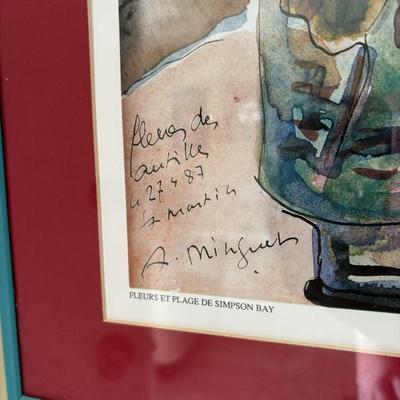 fleurs des
antilles
le 27 4 87
St martin
A. Minguet
FLEURS ET PLAGE DE SIMPSON BAY